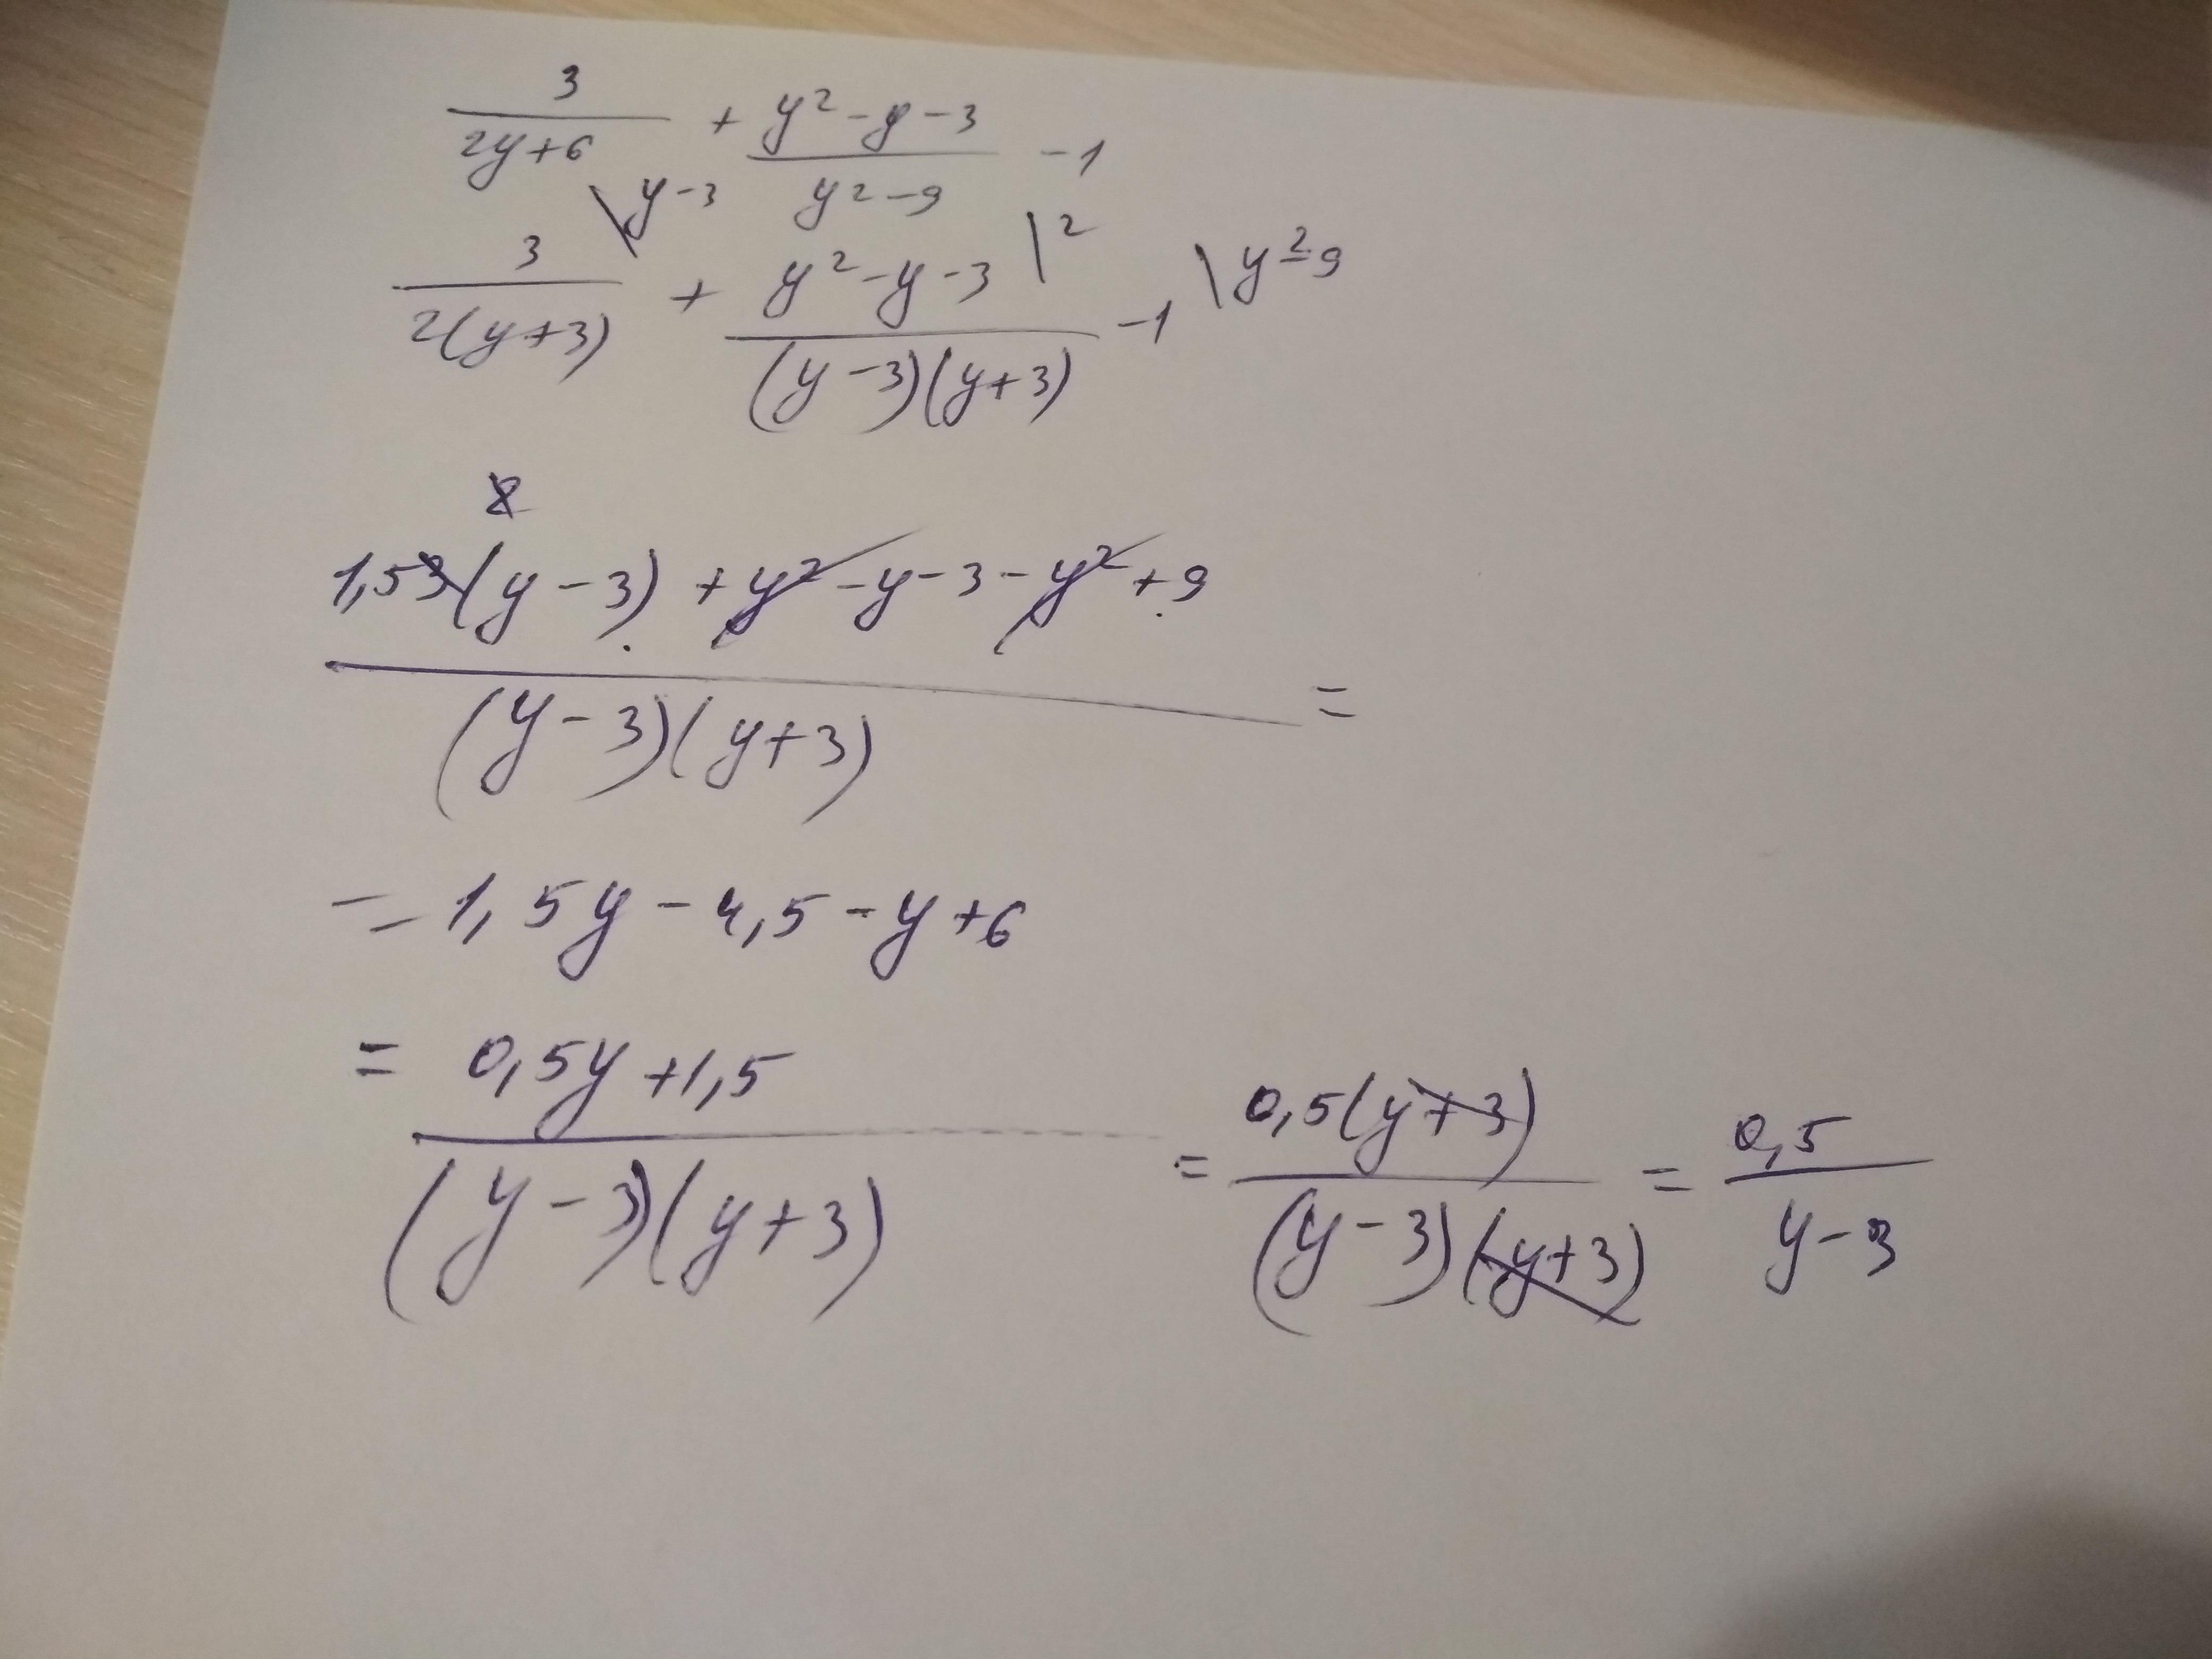 3/(2y+6) + (y²-y-3)/(y²-9) -1
3/(2(y+3)) \y-3 + (y²-y-3)/((y-3)(y+3)) \2 -1 \y²-9
(1,5(y-3) + y²-y-3-y²+9)/((y-3)(y+3)) =
= 1,5y - 4,5 - y + 6
= (0,5y+1,5)/((y-3)(y+3)) = (0,5(y+3))/((y-3)(y+3)) = 0,5/(y-3)